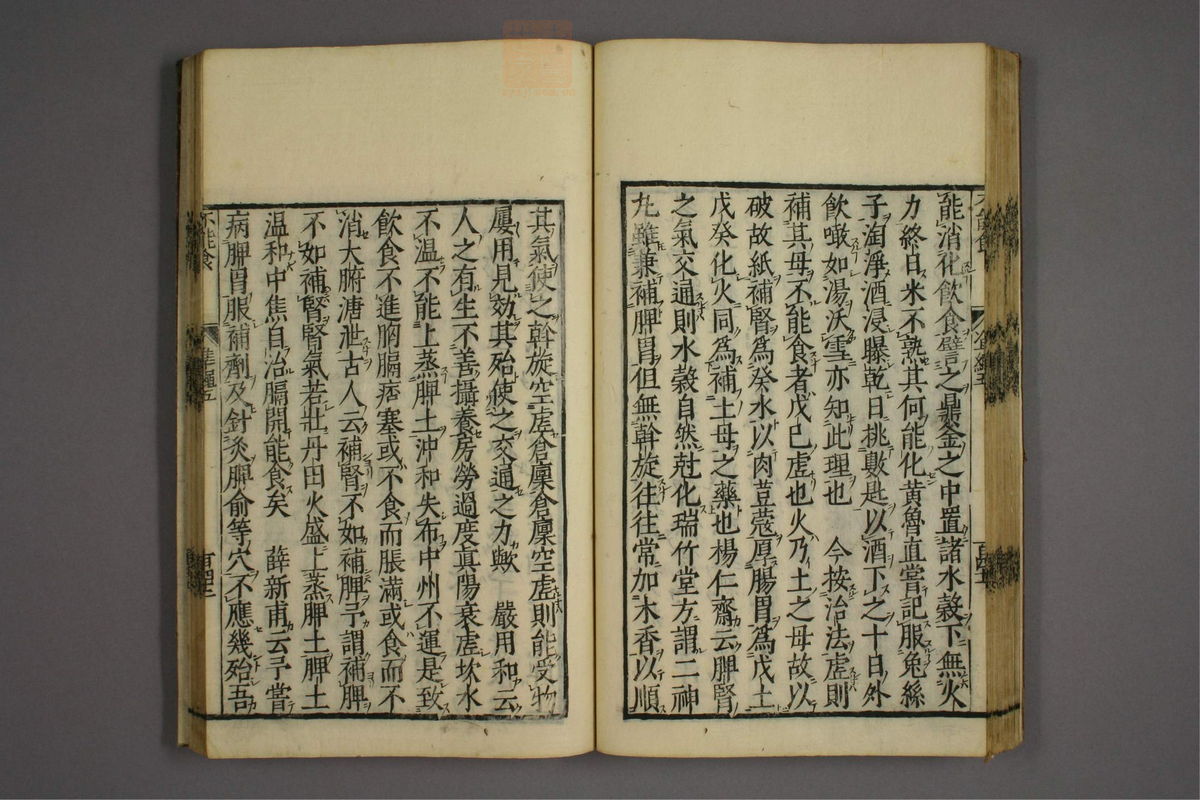 能消化飲食譬之鼎釜之中置諸水穀下無火
力終日米不熟其何能化黄魯直嘗記服兔絲
子淘淨酒浸曝乾日挑數匙以酒下之十日外
飲噉如湯沃雪亦知此理也　今按治法虚則
補其母不能食者戊已虚也火乃土之母故以
破故紙補腎爲癸水以肉荳蔻厚腸胃爲戊土
戊癸化火同爲補土母之藥也楊仁齋云脾腎
之氣交通則水穀自然尅化瑞竹堂方謂二神
丸雖兼補脾胃但無斡旋往往常加木香以順
其氣使之斡旋空虚倉廩倉廩空虚則能受物
屢用見効其殆使之交通之力歟　嚴用和云
人之有生不善攝養房勞過度眞陽衰虚坎水
不温不能上蒸脾土沖和失布中州不運是致
飲食不進胸膈痞塞或不食而脹滿或食而不
消大腑溏泄古人云補腎不如補脾予謂補脾
不如補腎腎氣若壯丹田火盛上蒸脾土脾土
温和中焦自治膈開能食矣　薛新甫云予嘗
病脾胃服補劑及針灸脾俞等穴不應幾殆吾
不能食
準繩五
百四三